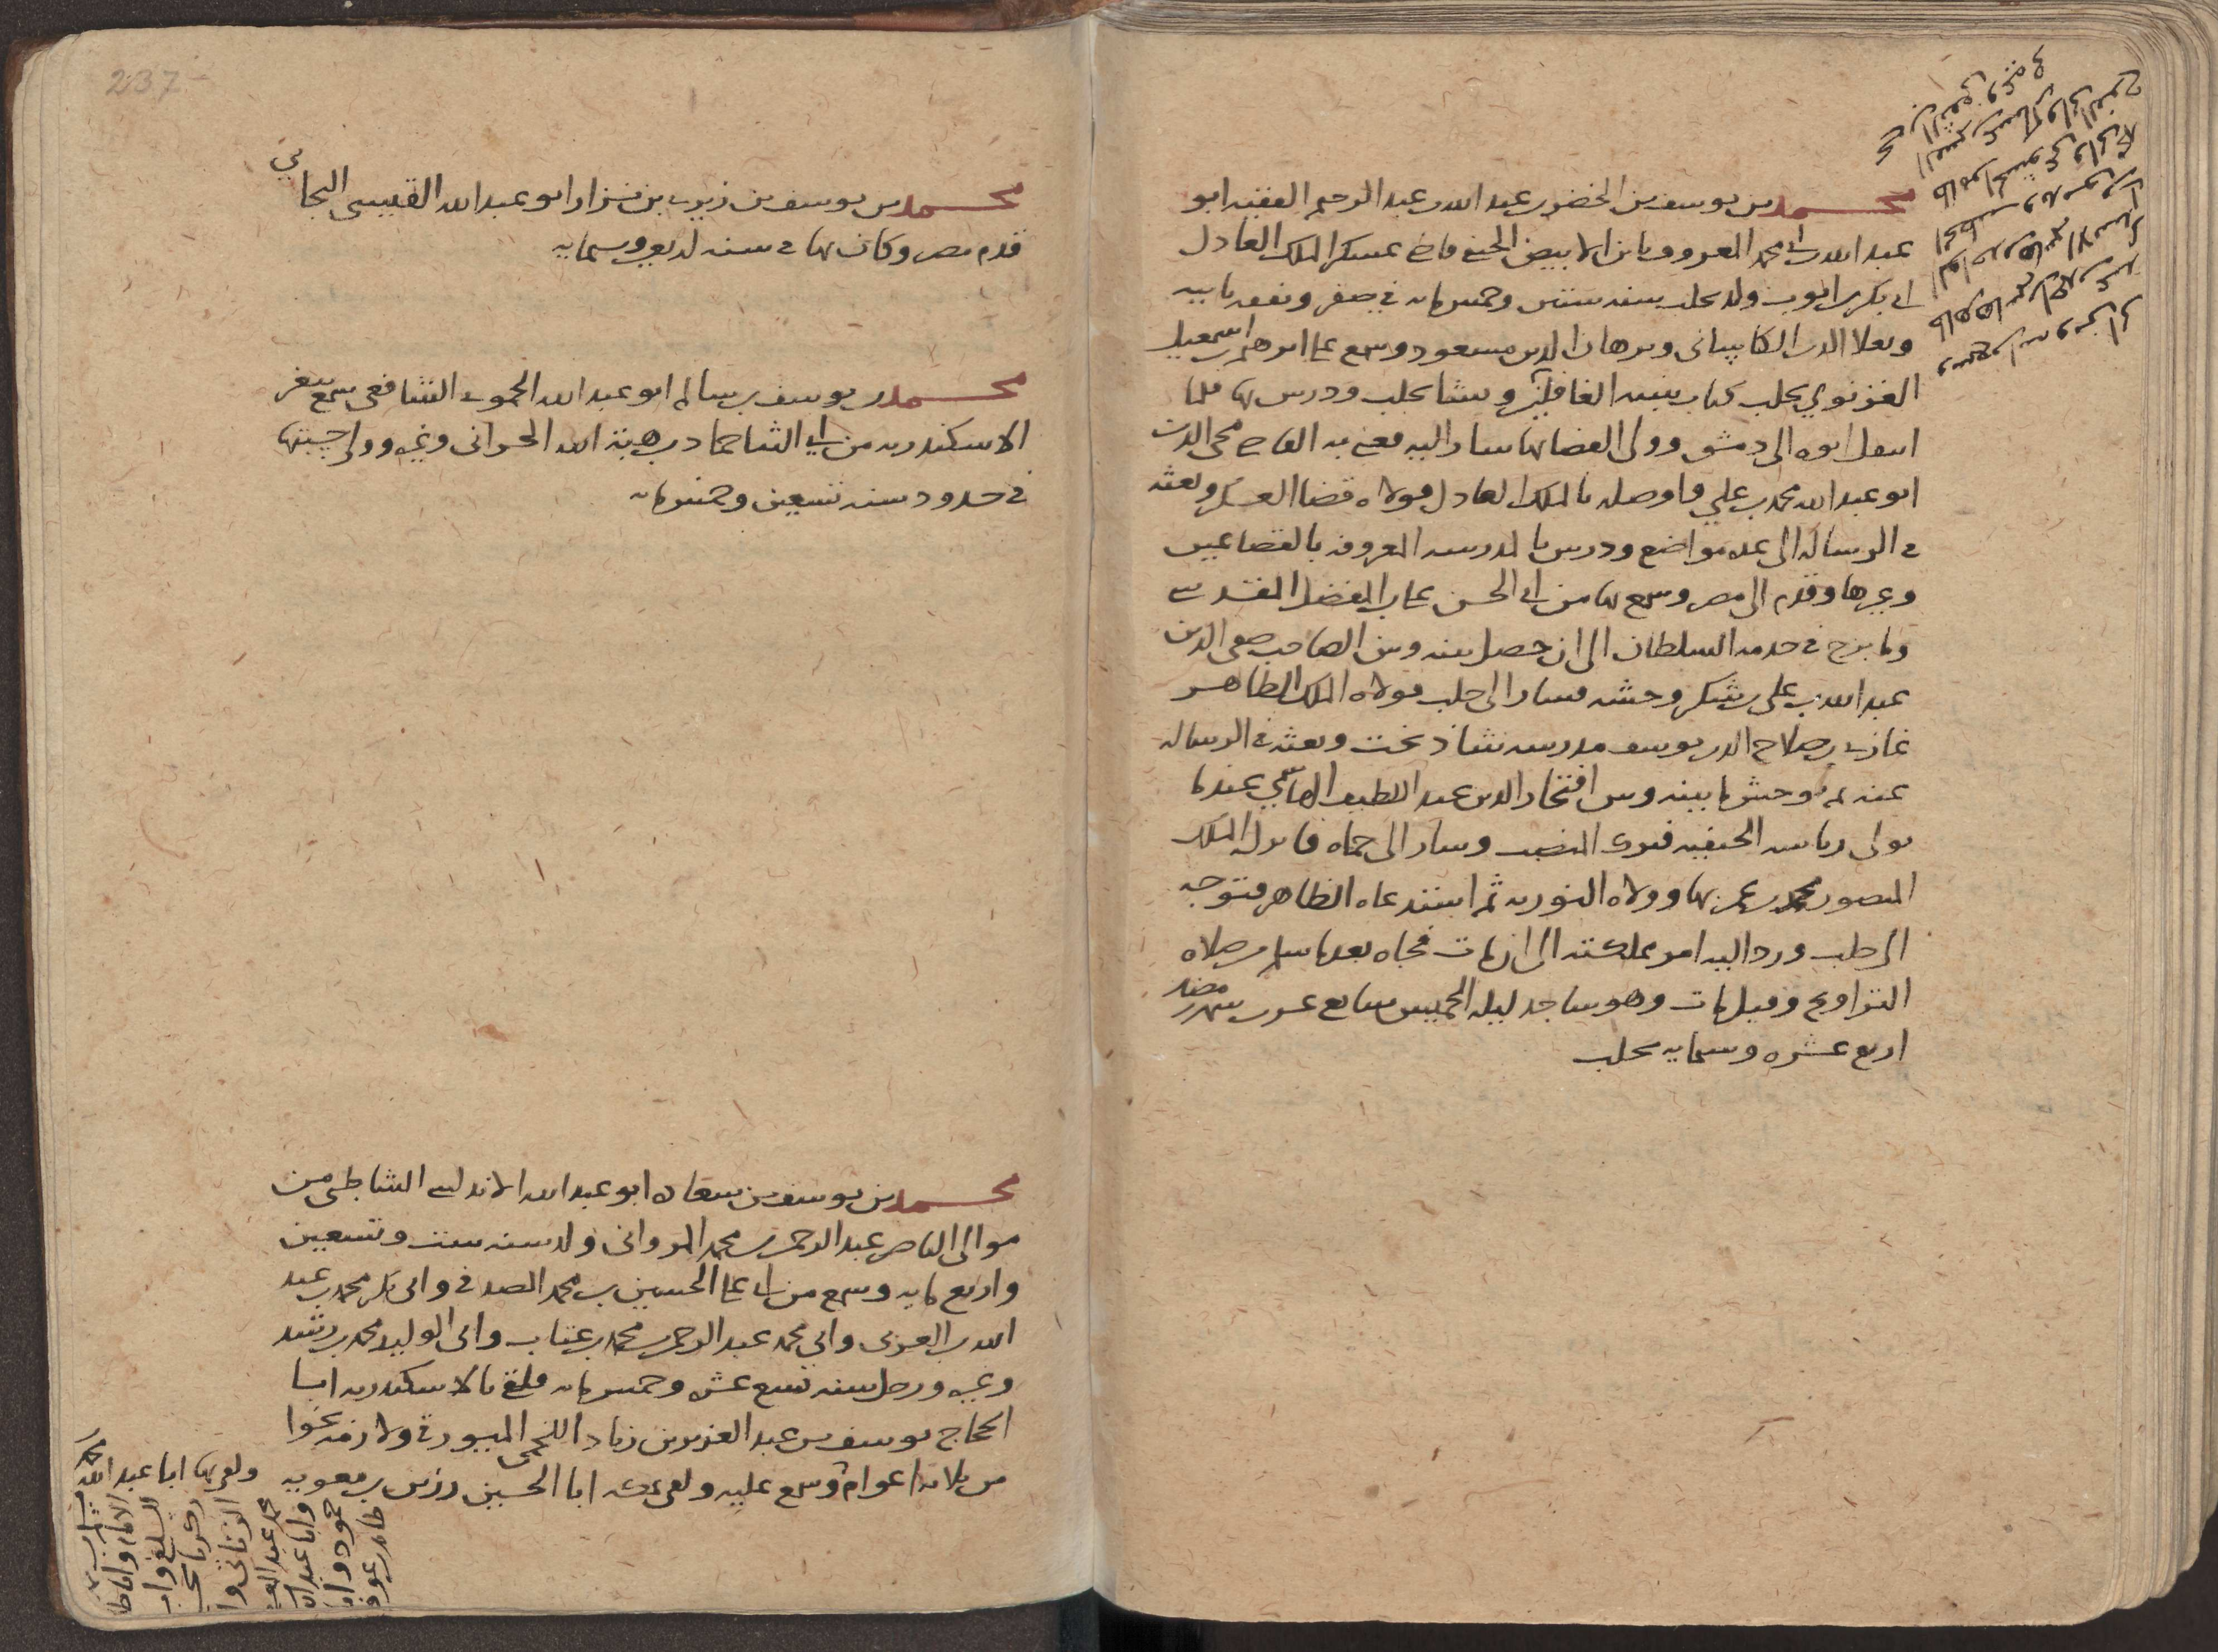 محمد بن يوسف بن الخضر بن عبد الله بن عبد الرحيم الفقيه ابو
عبد الله بن ابي محمد المعروف بابن الابيض الحنفي قاضي عسكر الملك العادل
ابي بكر بن ايوب ولد بحلب سنه ستين وخمس مايه في صفر وتفقه بابيه
وبعلا الدين الكاساني وبرهان الدين مسعود وسمع علي ابرهيم بن اسمعيل
الغزنوي بحلب كتاب تنبيه الغافلين ونشا بحلب ودرس بها فلما
انتقل ابوه الى دمشق وولى القضا بها سار اليه فعني به القاضي محيى الدين
ابو عبد الله محمد بن علي واوصله بالملك العادل فولاه قضا العسكر وبعثه
في الرساله الى عده مواضع ودرس بالمدرسه المعروفه بالقصاعين
وغيرها وقدم الى مصر وسمع بها من ابي الحسن علي بن المفضل المقدسي
وما برح في خدمه السلطان الى ان حصل بينه وبين الصاحب صفي الدين
عبد الله بن علي بن شكر وحشه فسار الى حلب فولاه الملك الظاهر
غازي بن صلاح الدين يوسف مدرسه شاذ بخت وبعثه في الرساله
عنه ثم توحش ما بينه وبين افتخار الدين عبد اللطيف الهاشمي عندما
تولى رياسه الحنفيه فترك المنصب وسار الى حماه فانزله الملك
المنصور محمد بن عمر بها وولاه النوريه ثم استدعاه الظاهر فتوجه
الى حلب ورد اليه امر مملكته الى ان مات فجاه بعد ما سلم من صلاه
التراويح وقيل مات وهو ساجد ليله الخميس سابع عشرين شهر رمضان
اربع عشره وستمايه بحلب
237
محمد بن يوسف بن زيري بن نزار ابو عبد الله القيسى البجايي
قدم مصر وكان بها في سنه اربع وستمايه
محمد بن يوسف بن سالم ابو عبد الله الحموي الشافعي سمع بثغر
الاسكندريه من ابي الثنا حماد بن هبة الله الحراني وغيره وولى حسبتها
في حدود سنه تسعين وخمس مايه
محمد بن يوسف بن سعاده ابو عبد الله الاندلسي الشاطبي من
موالى الناصر عبد الرحمن بن محمد المرواني ولد سنه ست وتسعين
واربع مايه وسمع من ابي علي الحسين بن محمد الصدفي وابي بكر محمد بن عبد
الله بن العربي وابي محمد عبد الرحمن بن محمد بن عتاب وابي الوليد محمد بن رشد
وغيره ورحل سنه تسع عشره وخمس مايه فلقي بالاسكندريه ابا
الحجاج يوسف بن عبد العزيز بن زياد اللخمي الميورقي ولازمه نحوا
من ثلاثه اعوام وسمع عليه ولقي بمكه ابا الحسين رزين بن معويه
ولقي بها ابا عبد الله محمد